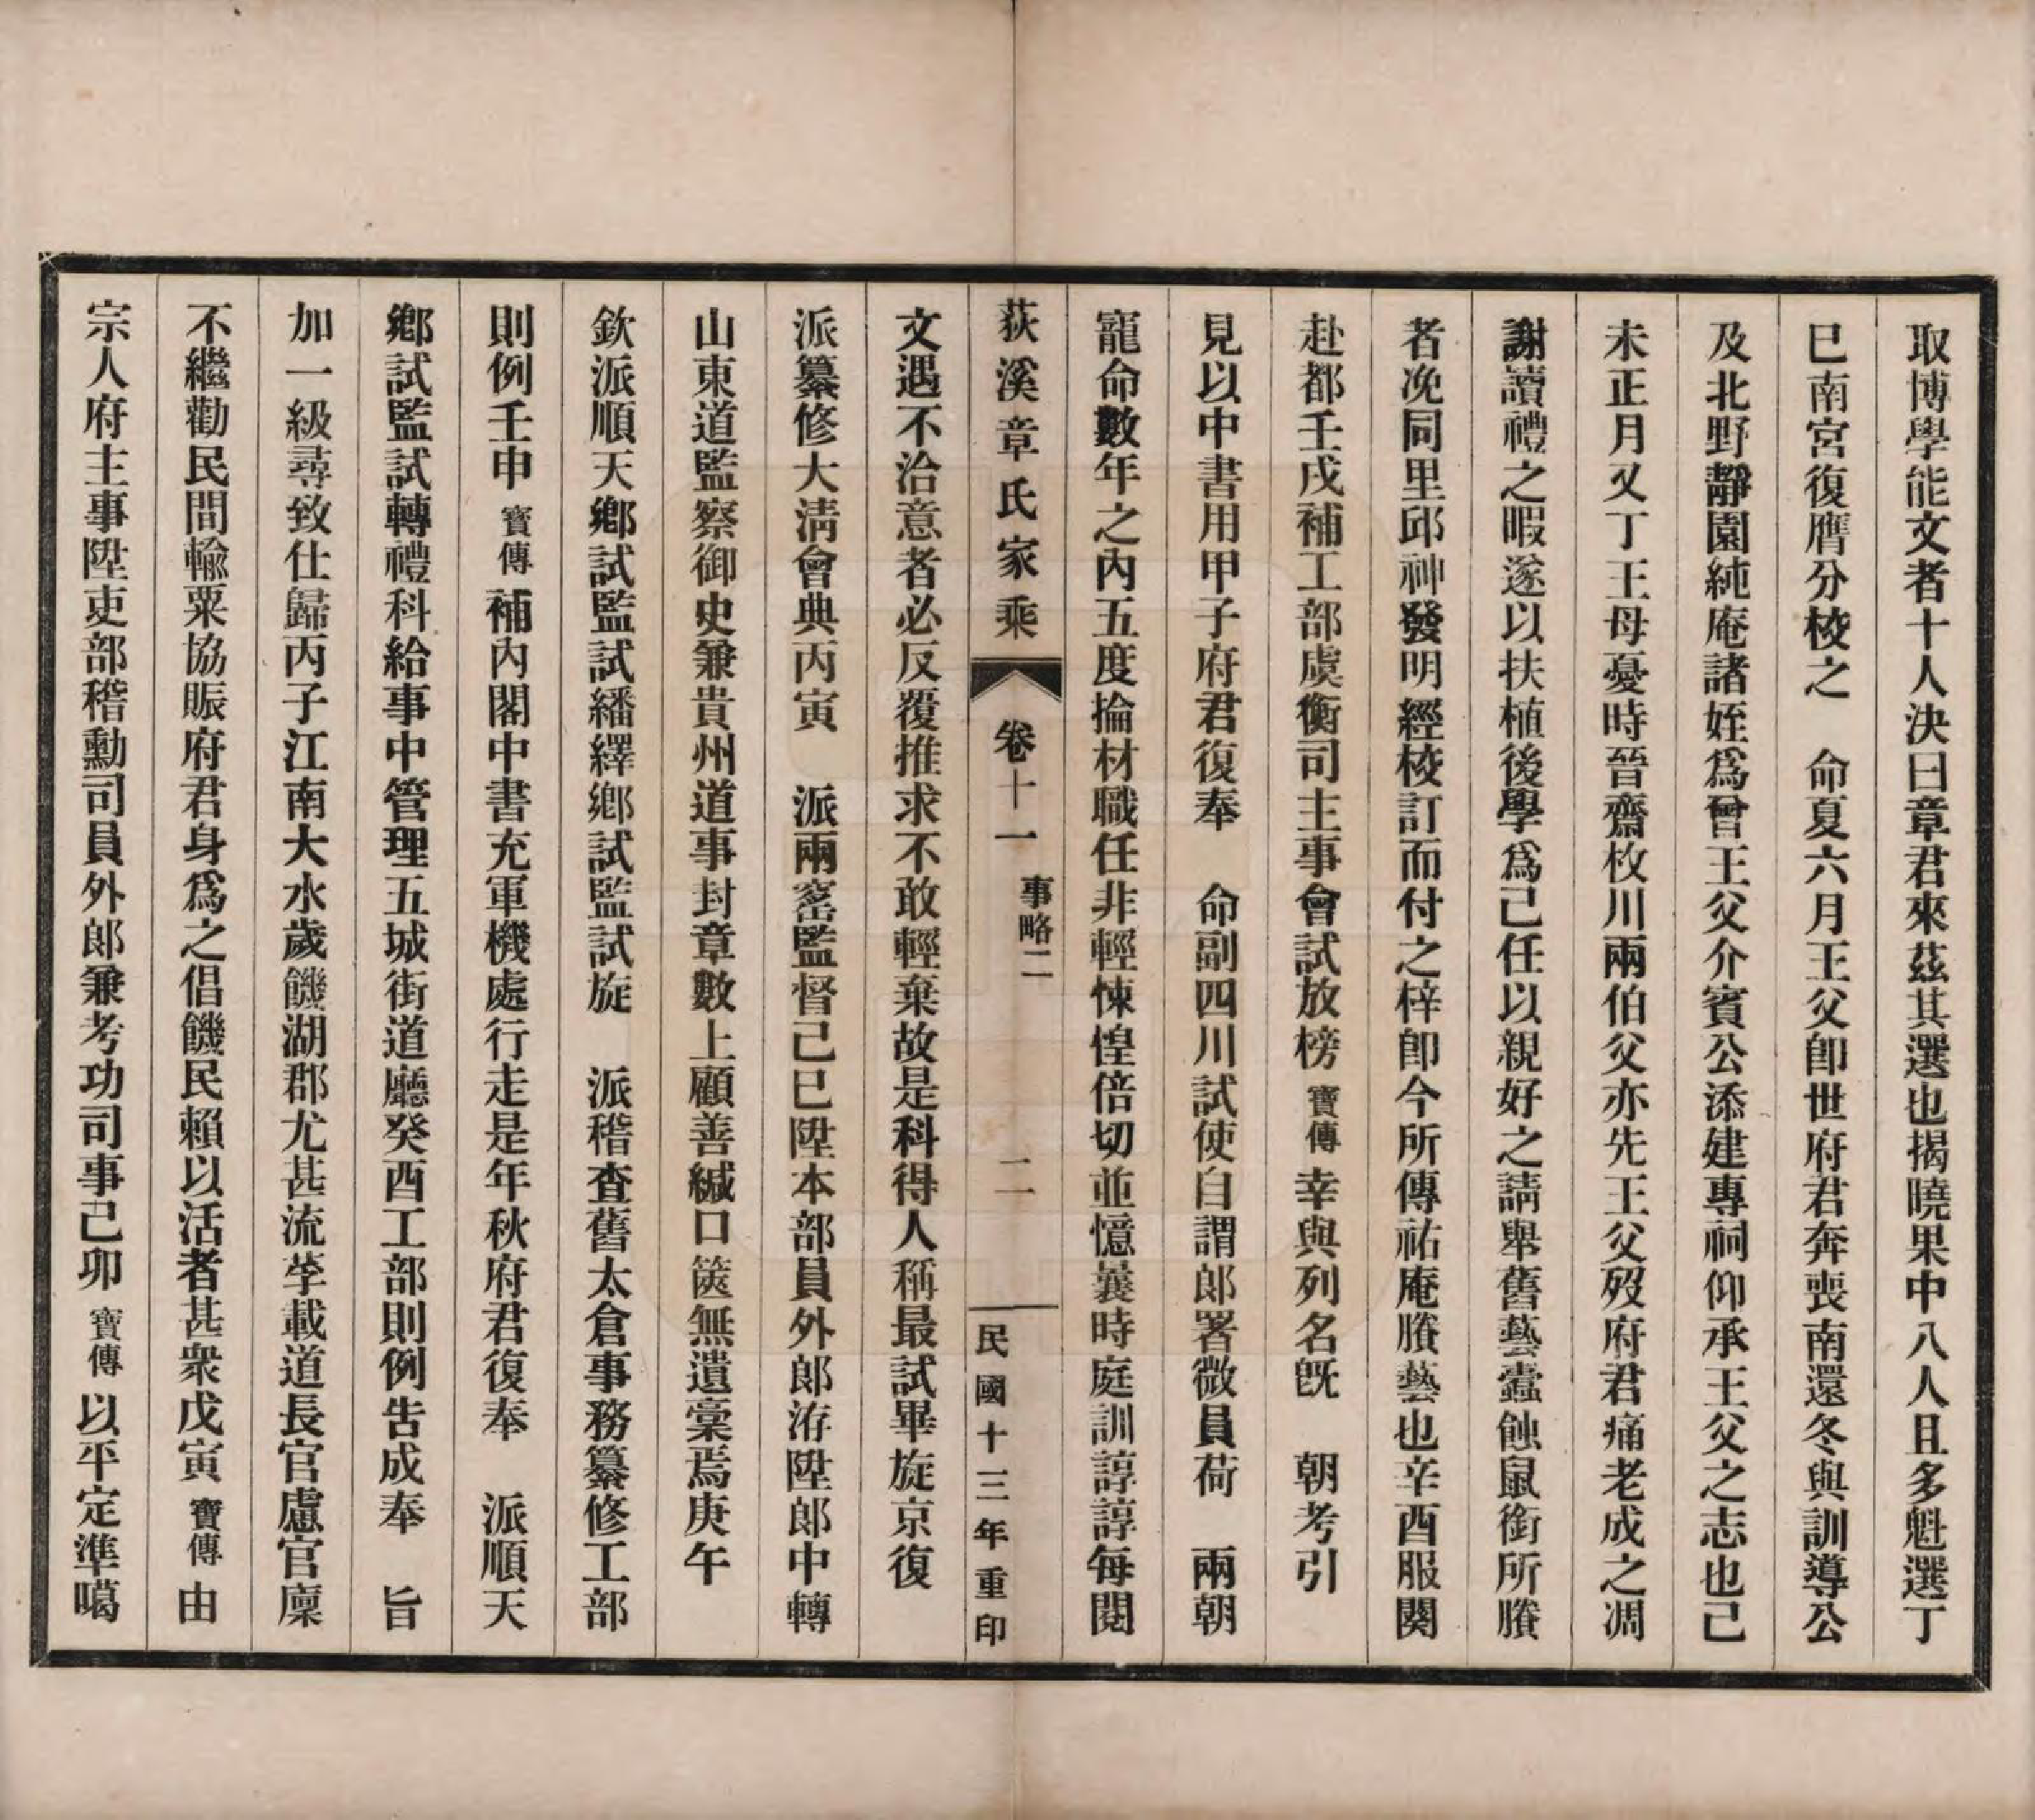 取博學能文者十人決曰章君來茲其選也揭曉果中八人且多魁選丁
巳南宮復膺分校之　命夏六月王父卽世府君奔喪南還冬與訓導公
及北野靜園純庵諸姪爲曾王父介賓公添建專祠仰承王父之志也己
未正月又丁王母憂時晉齋枚川兩伯父亦先王父歿府君痛老成之凋
謝讀禮之暇遂以扶植後學爲己任以親好之請舉舊藝蠹蝕鼠銜所賸
者浼同里邱神發明經校訂而付之梓卽今所傳祐庵賸藝也辛酉服闋
赴都壬戌補工部虞衡司主事會試放榜寶傳幸與列名旣　朝考引
見以中書用甲子府君復奉　命副四川試使自謂郎署微員荷　兩朝
寵命數年之內五度掄材職任非輕悚惶倍切並憶曩時庭訓諄諄每閱
荻溪章氏家乘　卷十一　事略二　二　民國十三年重印
文遇不洽意者必反覆推求不敢輕棄故是科得人稱最試畢旋京復
派纂修大淸會典丙寅　派兩窰監督己巳陞本部員外郎洊陞郎中轉
山東道監察御史兼貴州道事封章數上顧善緘口篋無遺稾焉庚午
欽派順天鄉試監試繙繹鄉試監試旋　派稽查舊太倉事務纂修工部
則例壬申寶傳補內閣中書充軍機處行走是年秋府君復奉　派順天
鄉試監試轉禮科給事中管理五城街道廳癸酉工部則例告成奉　旨
加一級尋致仕歸丙子江南大水歲饑湖郡尤甚流莩載道長官慮官廩
不繼勸民間輸粟協賑府君身爲之倡饑民賴以活者甚衆戊寅寶傳由
宗人府主事陞吏部稽勳司員外郎兼考功司事己卯寶傳以平定準噶